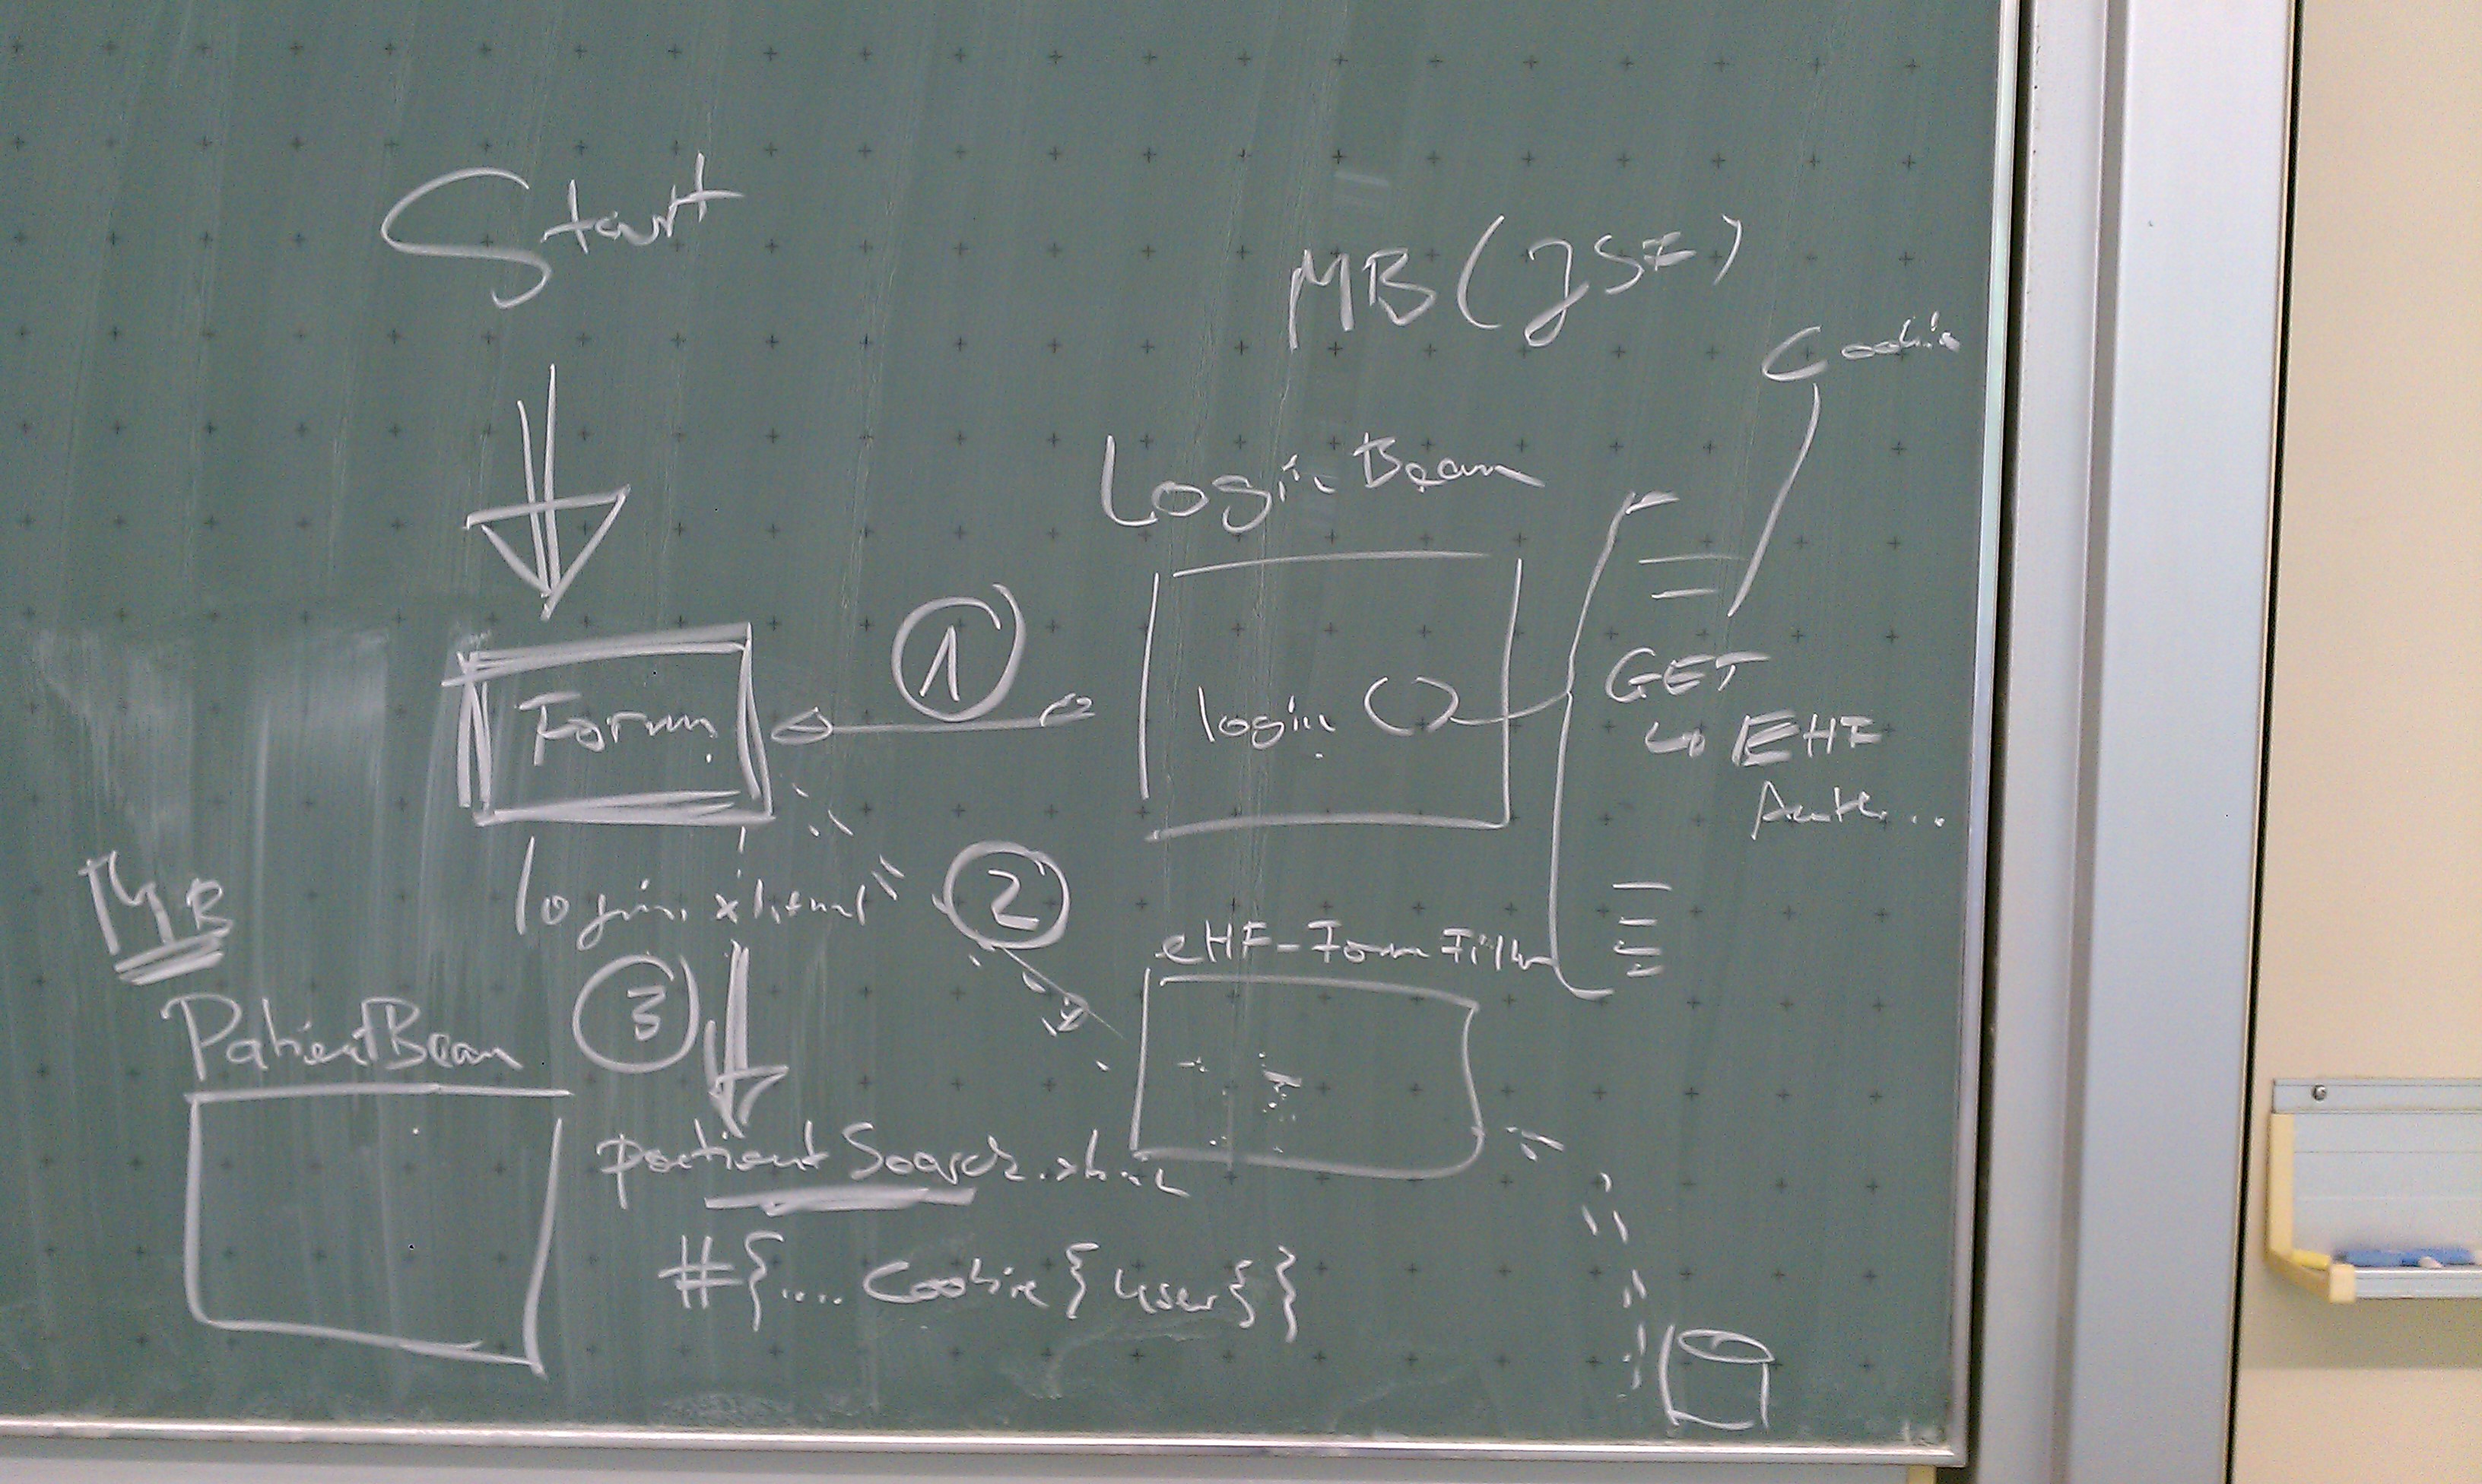 Start
MB (JSF)
Cookie
LoginBean
1
Form
login ()
GET
EHF
Auth...
login.xhtml
2
MB
eHF-Form
3
PatientBean
patientSearch.xhtml
#{.... Cookie{user}}